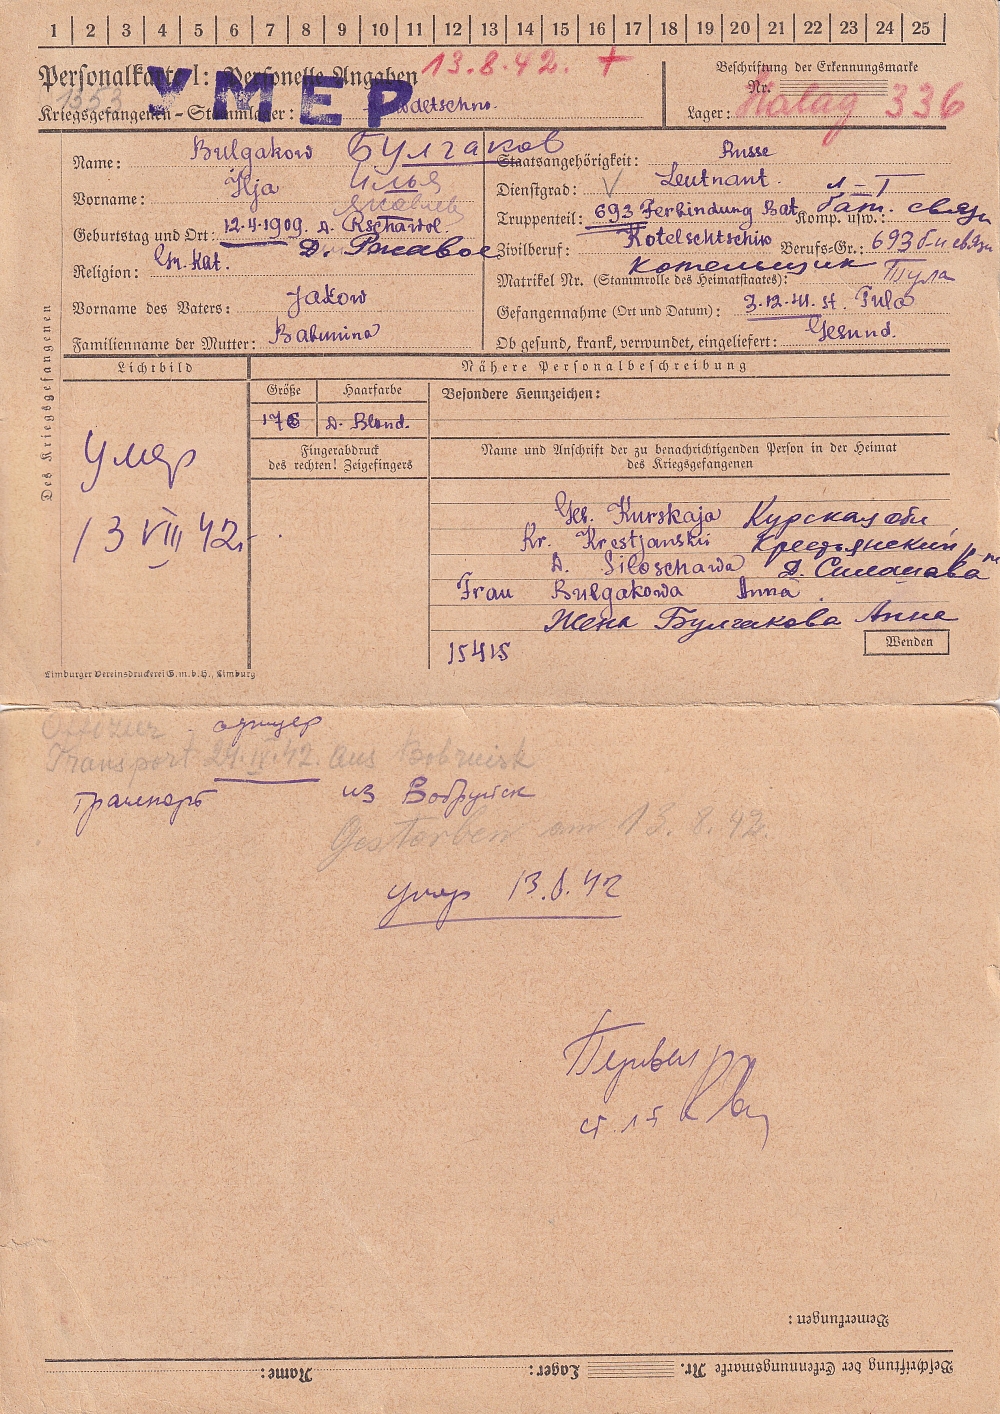 1 2 3 4 5 6 7 8 9 10 11 12 13 14 15 16 17 18 19 20 21 22 23 24 25
Personalkarte I: Personelle Angaben 13.8.42. +
УМЕР
Kriegsgefangenen-Stammlager:
Beschriftung der Erkennungsmarke
Nr.
Lager: Stalag 336
Des Kriegsgefangenen
Name: Bulgakow Булгаков
Vorname: Ilja Илья
Яковлев
Geburtstag und Ort: 12.4.1909. D. Rschawol.
Д. Ржавое
Religion: Gr. Kat.
Vorname des Vaters: Jakow
Familienname der Mutter: Bakunina
Staatsangehörigkeit: Russe
Dienstgrad: Leutnant. л-т
Truppenteil: 693 Ferbindung Bat. Komp. usw.: бат. связи
Zivilberuf: Kotelschtschik Berufs-Gr.: 693 б-н связи
котельщик
Matrikel Nr. (Stammrolle des Heimatstaates): Тула
Gefangennahme (Ort und Datum): 3.12.41. st. Tula
Ob gesund, krank, verwundet, eingeliefert: Gesund.
Lichtbild
Nähere Personalbeschreibung
Größe Haarfarbe Besondere Kennzeichen:
176 D. Blond.
Fingerabdruck
des rechten! Zeigefingers
Name und Anschrift der zu benachrichtigenden Person in der Heimat
des Kriegsgefangenen
Умер
13 VIII 42.
Geb. Kurskaja Курская обл
Kr. Krestjanskii Крестьянский р-н
D. Siloschawa Д.
Frau Bulgakowa Anna.
Жена Булгакова Анна
15415
Wenden
Limburger Vereinsdruckerei G.m.b.H., Limburg
Offizier офицер
Transport 24.IV.42. aus Bobruisk
транспорт из Бобруйск
Gestorben am 13.8.42.
умер 13.8.42
ст. л-т
Bemerkungen:
Beschriftung der Erkennungsmarke Nr. Lager: Name: